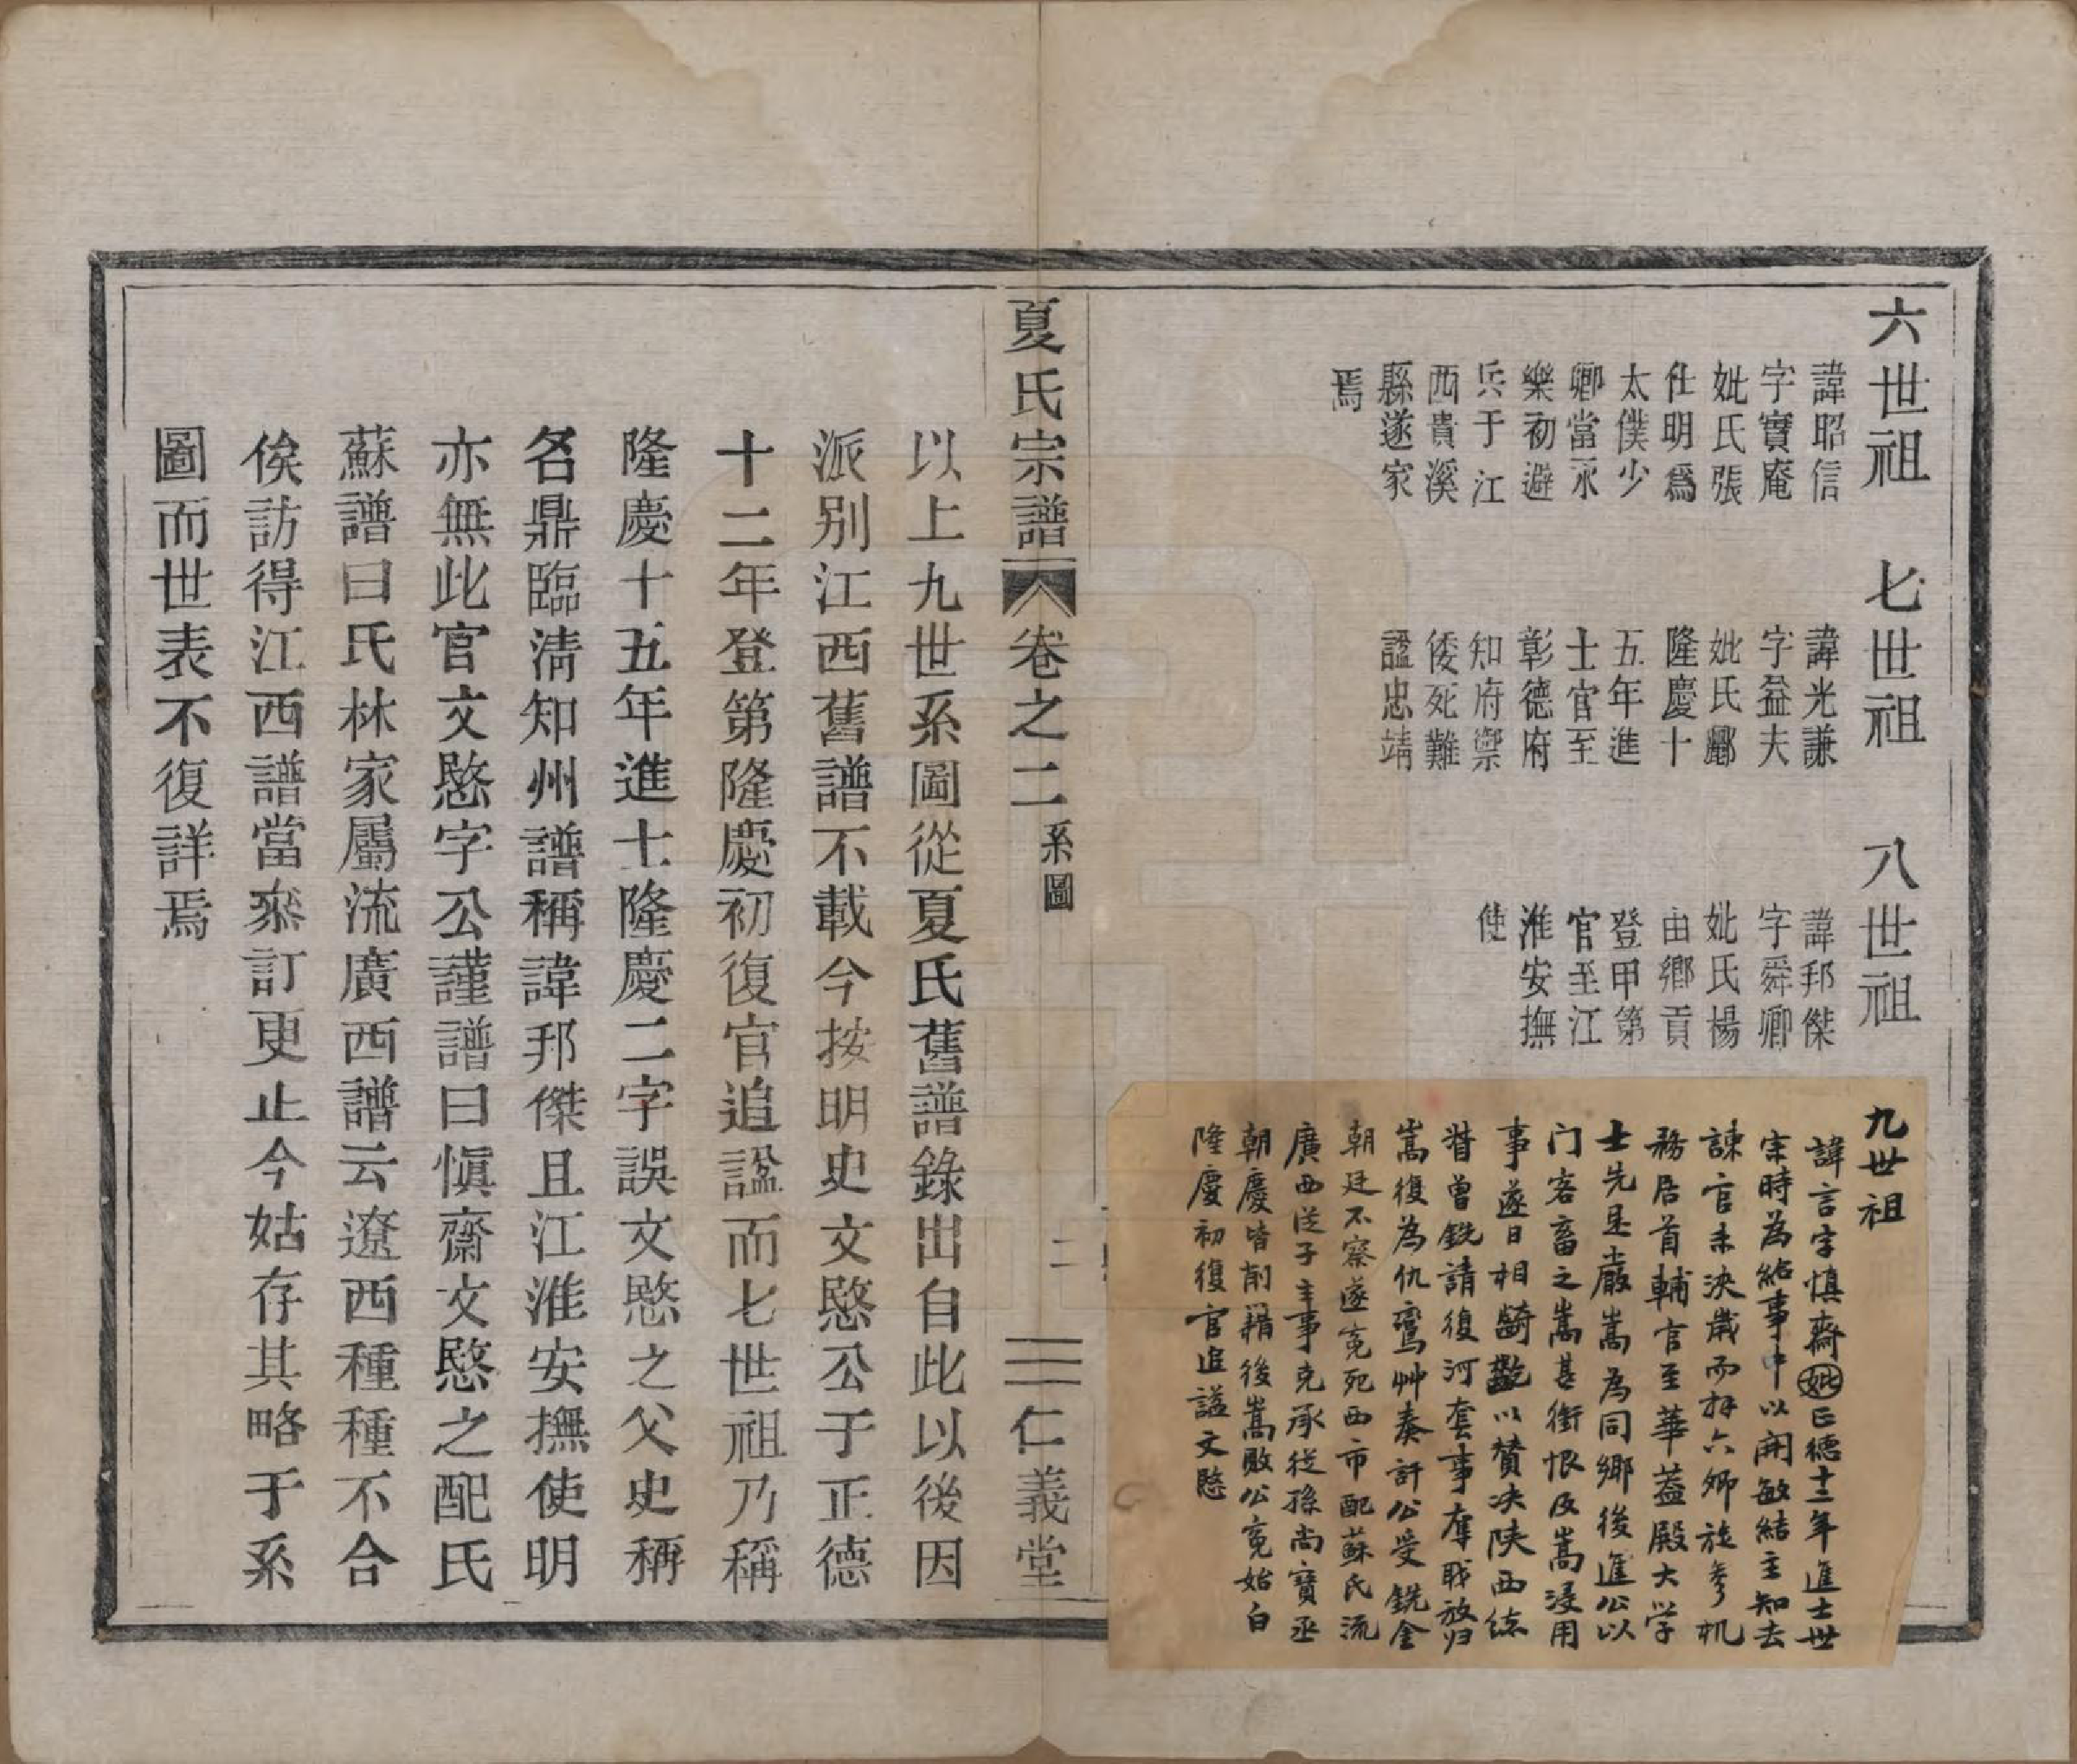 六世祖
諱昭信
字寶庵
妣氏張
仕明爲
太僕少
卿當永
樂初避
兵于江
西貴溪
縣遂家
焉
七世祖
諱光謙
字益夫
妣氏酈
隆慶十
五年進
士官至
彰德府
知府禦
倭死難
諡忠靖
八世祖
諱邦傑
字舜卿
妣氏楊
由鄉貢
登甲第
官至江
淮安撫
使
九世祖
諱言字慎齋妣正德十二年進士世
宗時為給事中以開敏結主知去
諫官未浹歲而拜六卿旋參机
務居首輔官至華蓋殿大学
士先是嚴嵩為同鄉後進公以
门客畜之嵩甚銜恨及嵩浸用
事遂日相齮齕以贊决陝西總
督曾銑請復河套事奪職放归
嵩復為仇鸞艸奏訐公受銑金
朝廷不察遂竟死西市配蘇氏流
廣西從子主事克承從孫尚寶丞
朝慶皆削籍後嵩敗公寃始白
隆慶初復官追謚文愍
夏氏宗譜 卷之二 系圖 二 仁義堂
以上九世系圖從夏氏舊譜錄出自此以後因
派别江西舊譜不載今按明史文愍公于正德
十二年登第隆慶初復官追諡而七世祖乃稱
隆慶十五年進士隆慶二字誤文愍之父史稱
名鼎臨淸知州譜稱諱邦傑且江淮安撫使明
亦無此官文愍字公謹譜曰愼齋文愍之配氏
蘇譜曰氏林家屬流廣西譜云遼西種種不合
俟訪得江西譜當叅訂更止今姑存其略于系
圖而世表不復詳焉